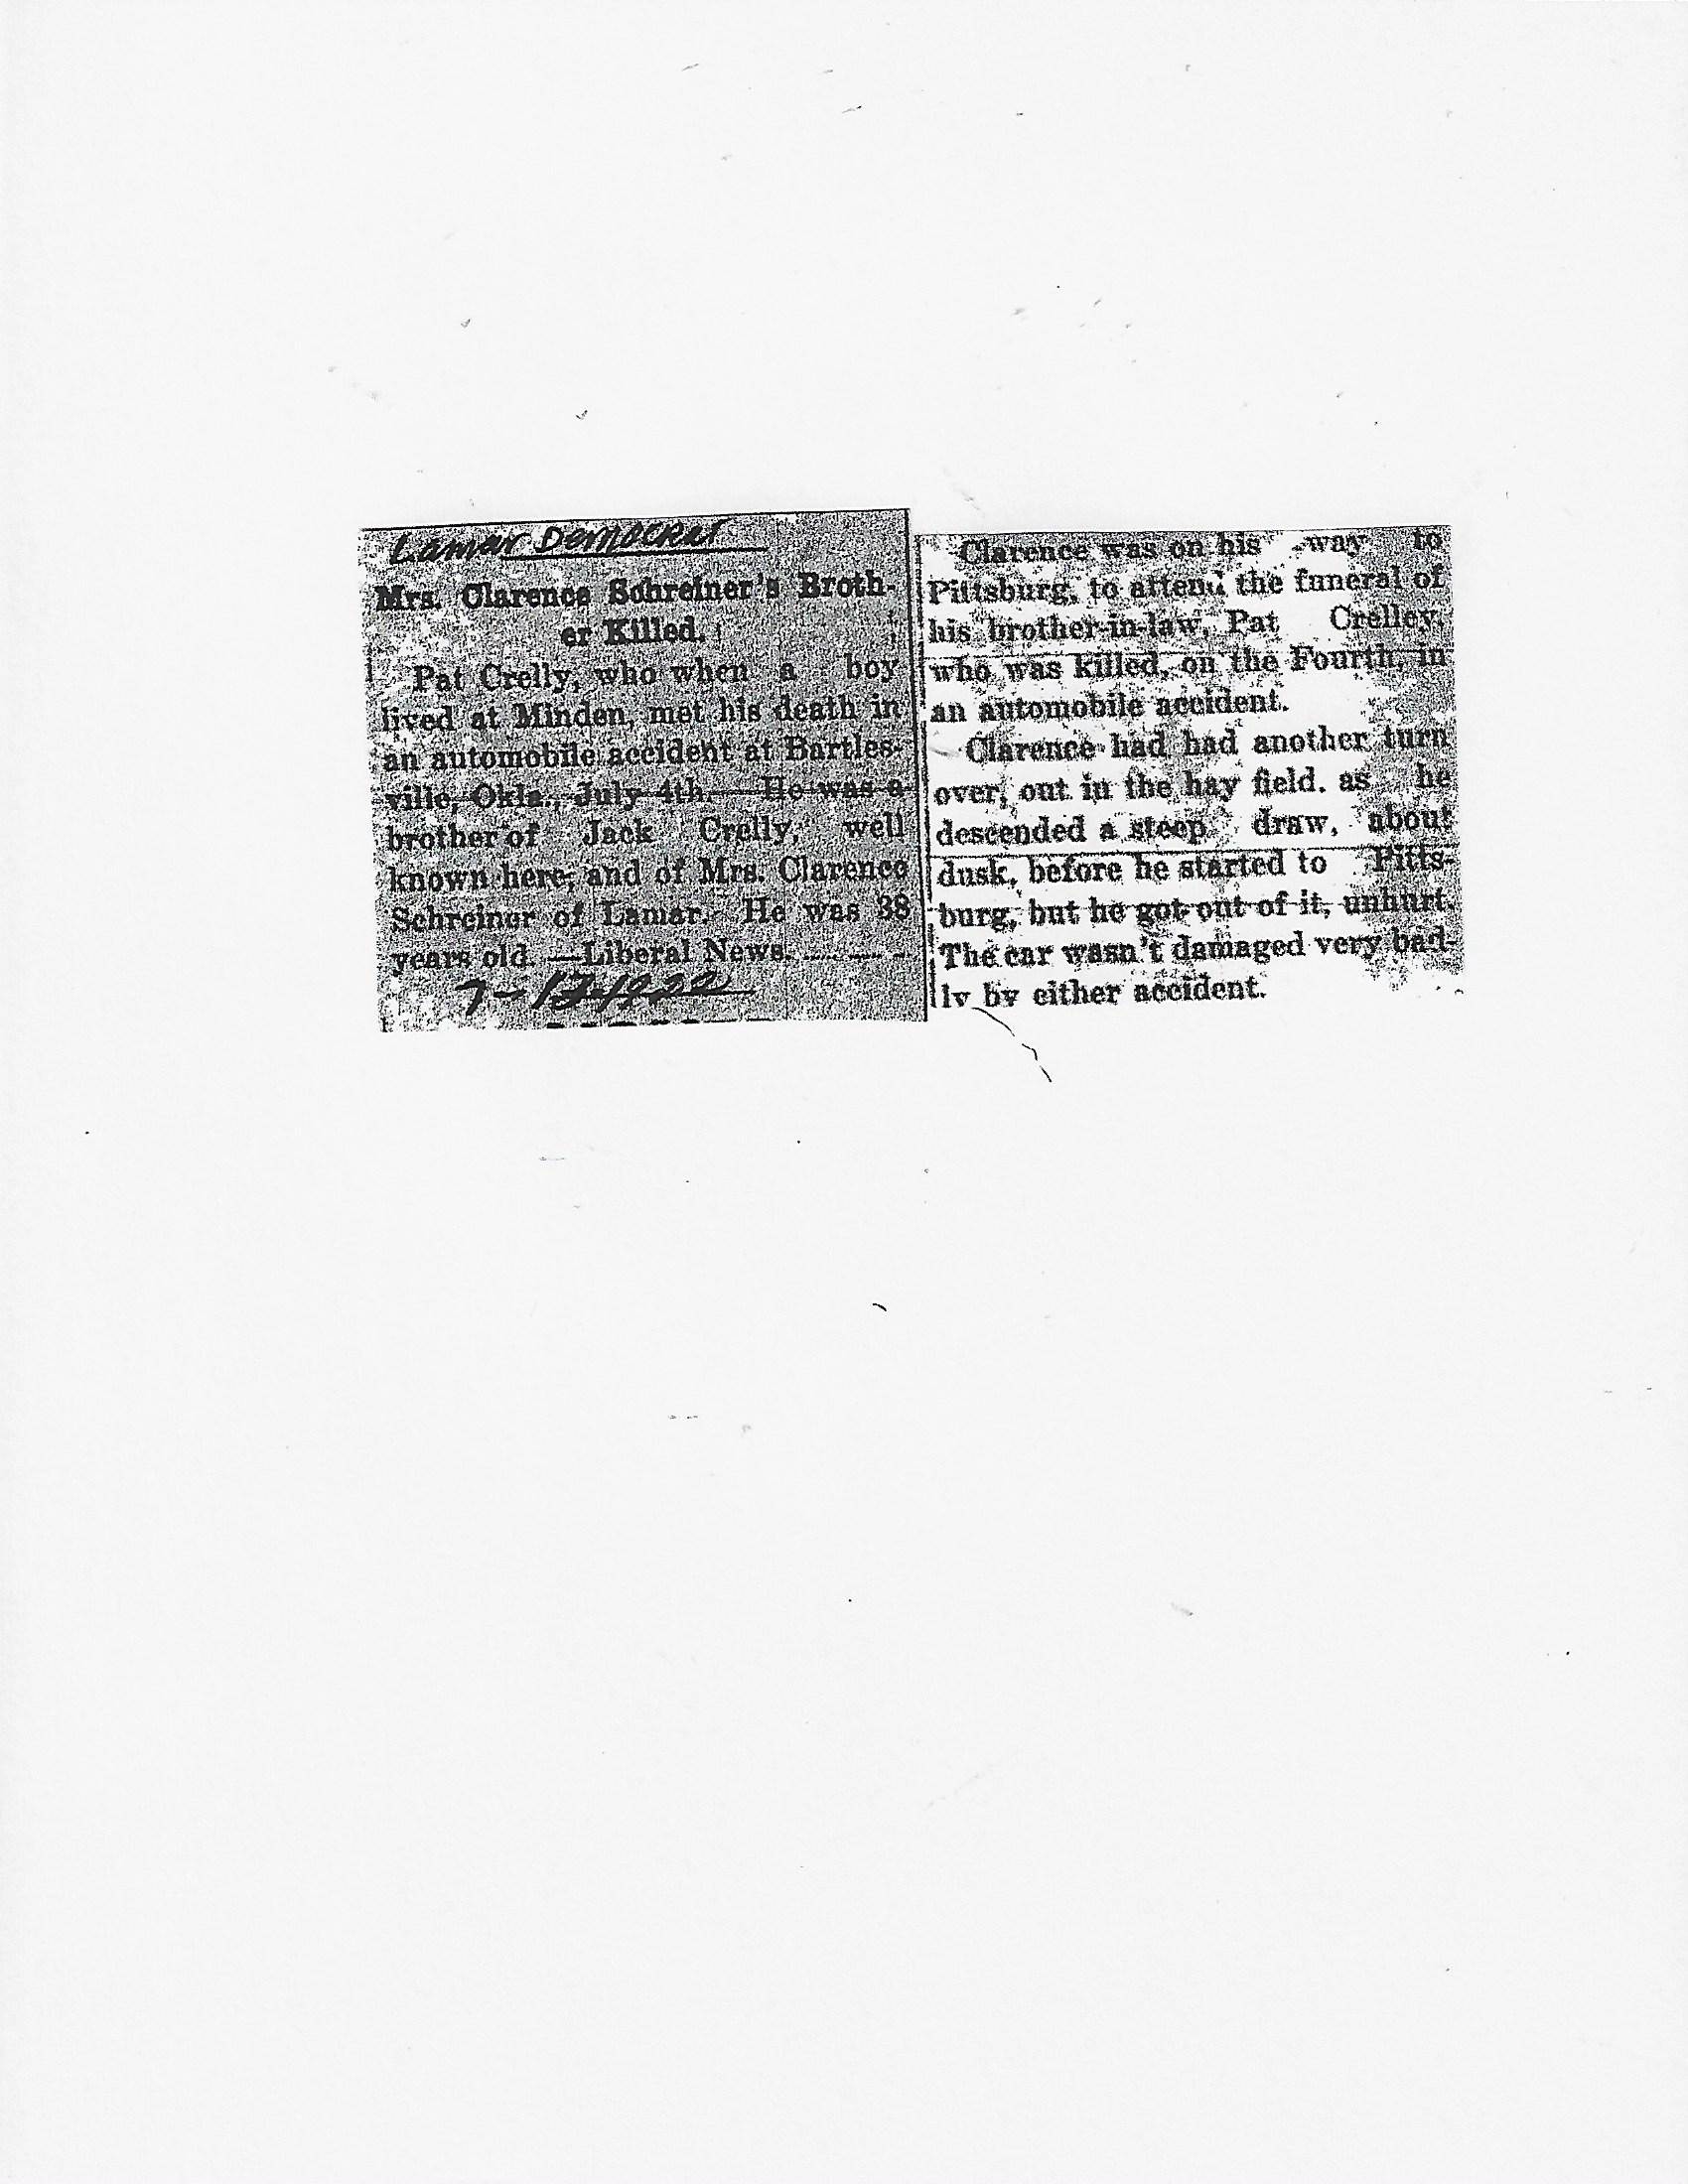 Lamar Democrat
Mrs. Clarence Schreiner's Broth-
er Killed.
Pat Crelly, who when a boy
lived at Minden, met his death in
an automobile accident at Bartles-
ville, Okla., July 4th. He was a
brother of Jack Crelly, well
known here, and of Mrs. Clarence
Schreiner of Lamar. He was 38
years old. —Liberal News.
7-13-1922
Clarence was on his way to
Pittsburg, to attend the funeral of
his brother-in-law, Pat Crelley,
who was killed, on the Fourth, in
an automobile accident.
Clarence had had another turn
over, out in the hay field. as he
descended a steep draw, about
dusk, before he started to Pitts-
burg, but he got out of it, unhurt.
The car wasn't damaged very bad-
ly by either accident.